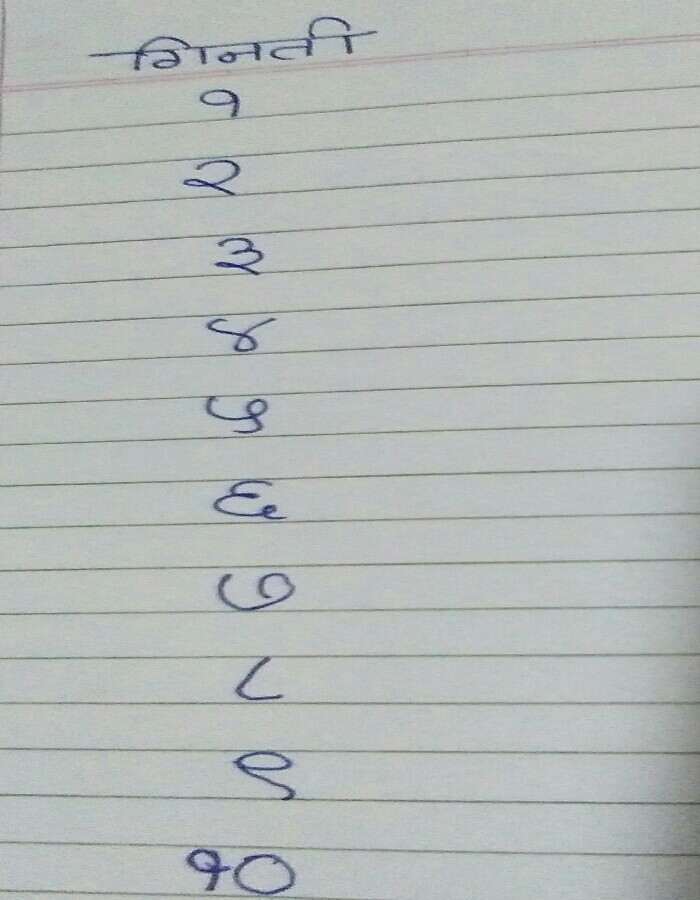 गिनती
१
२
३
४
५
६
७
८
९
१०